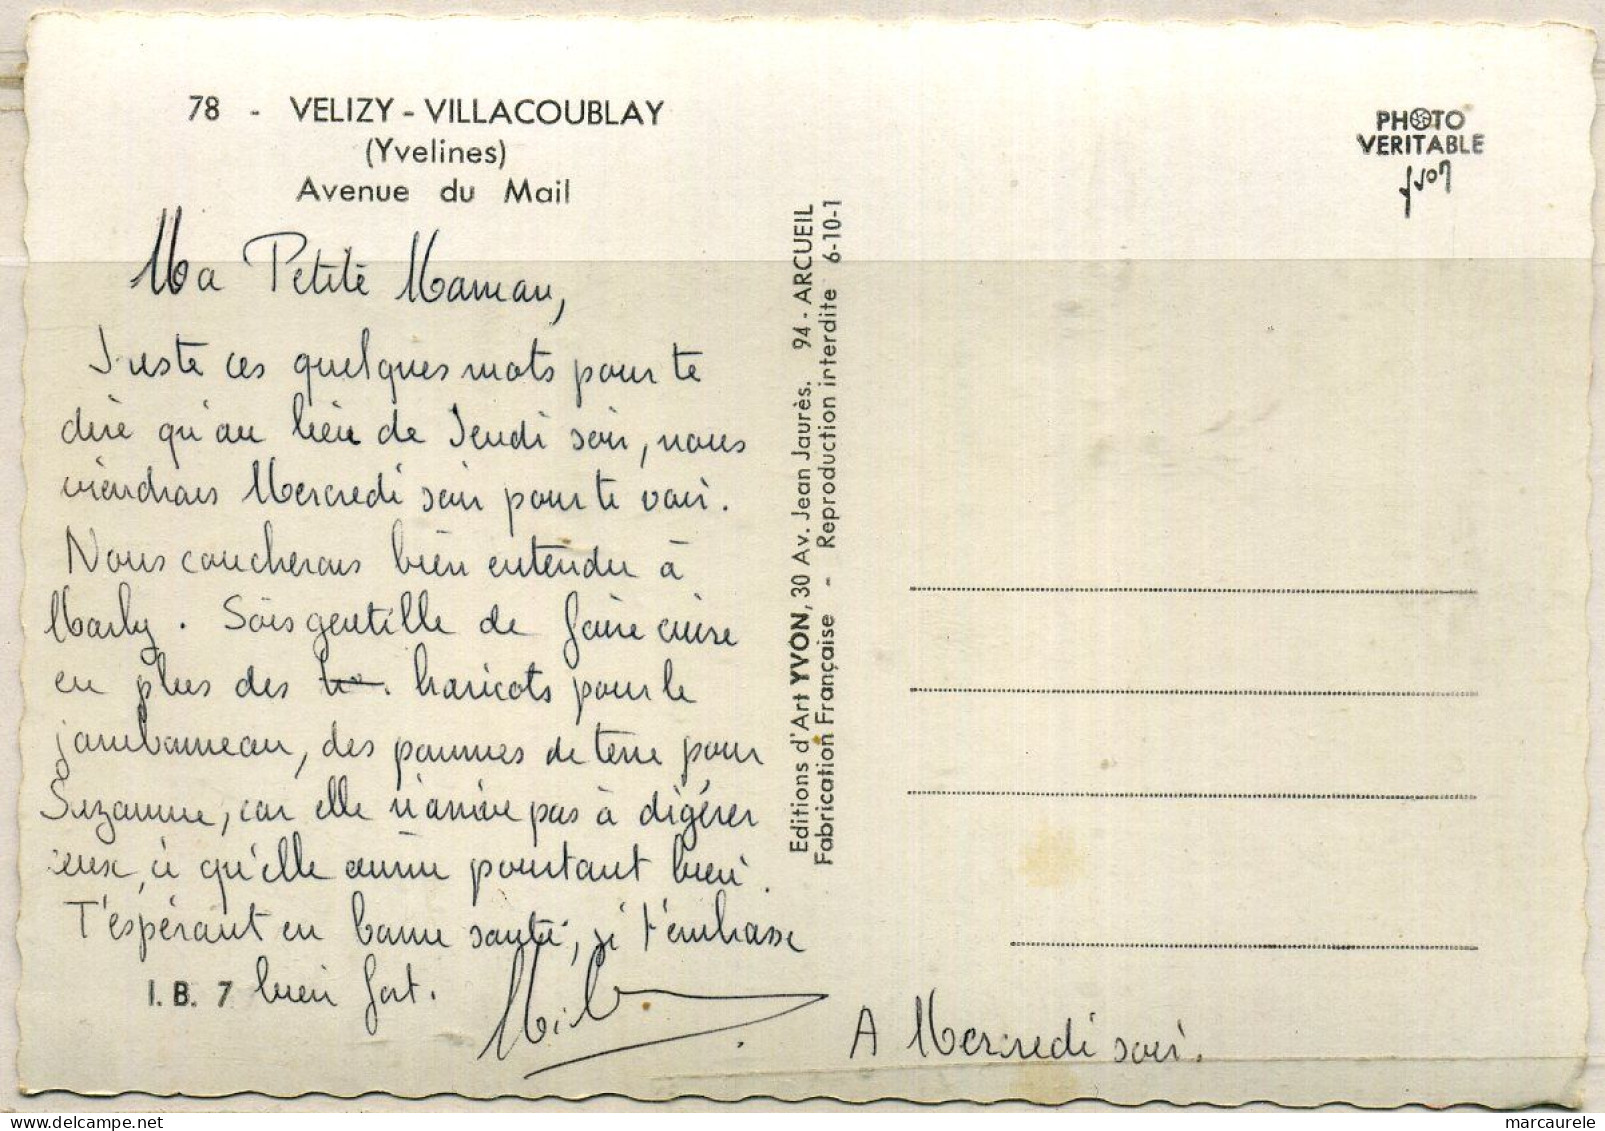 78 - VELIZY - VILLACOUBLAY
(Yvelines)
Avenue du Mail
Ma Petite Maman,
Juste ces quelques mots pour te
dire qu'au lieu de Jeudi soir, nous
viendrons Mercredi soir pour te voir.
Nous coucherons bien entendu à
Marly. Sois gentille de faire cuire
en plus des haricots pour le
jambonneau, des pommes de terre pour
Suzanne, car elle n'arrive pas à digérer
ceux, ci qu'elle aime pourtant bien.
T'espérant en bonne santé, je t'embrasse
bien fort.
I. B. 7
A Mercredi soir.
Editions d'Art YVON, 30 Av. Jean Jaurès. 94 - ARCUEIL
Fabrication Française - Reproduction interdite 6-10-1
PHOTO
VERITABLE
yvon
marcaurele